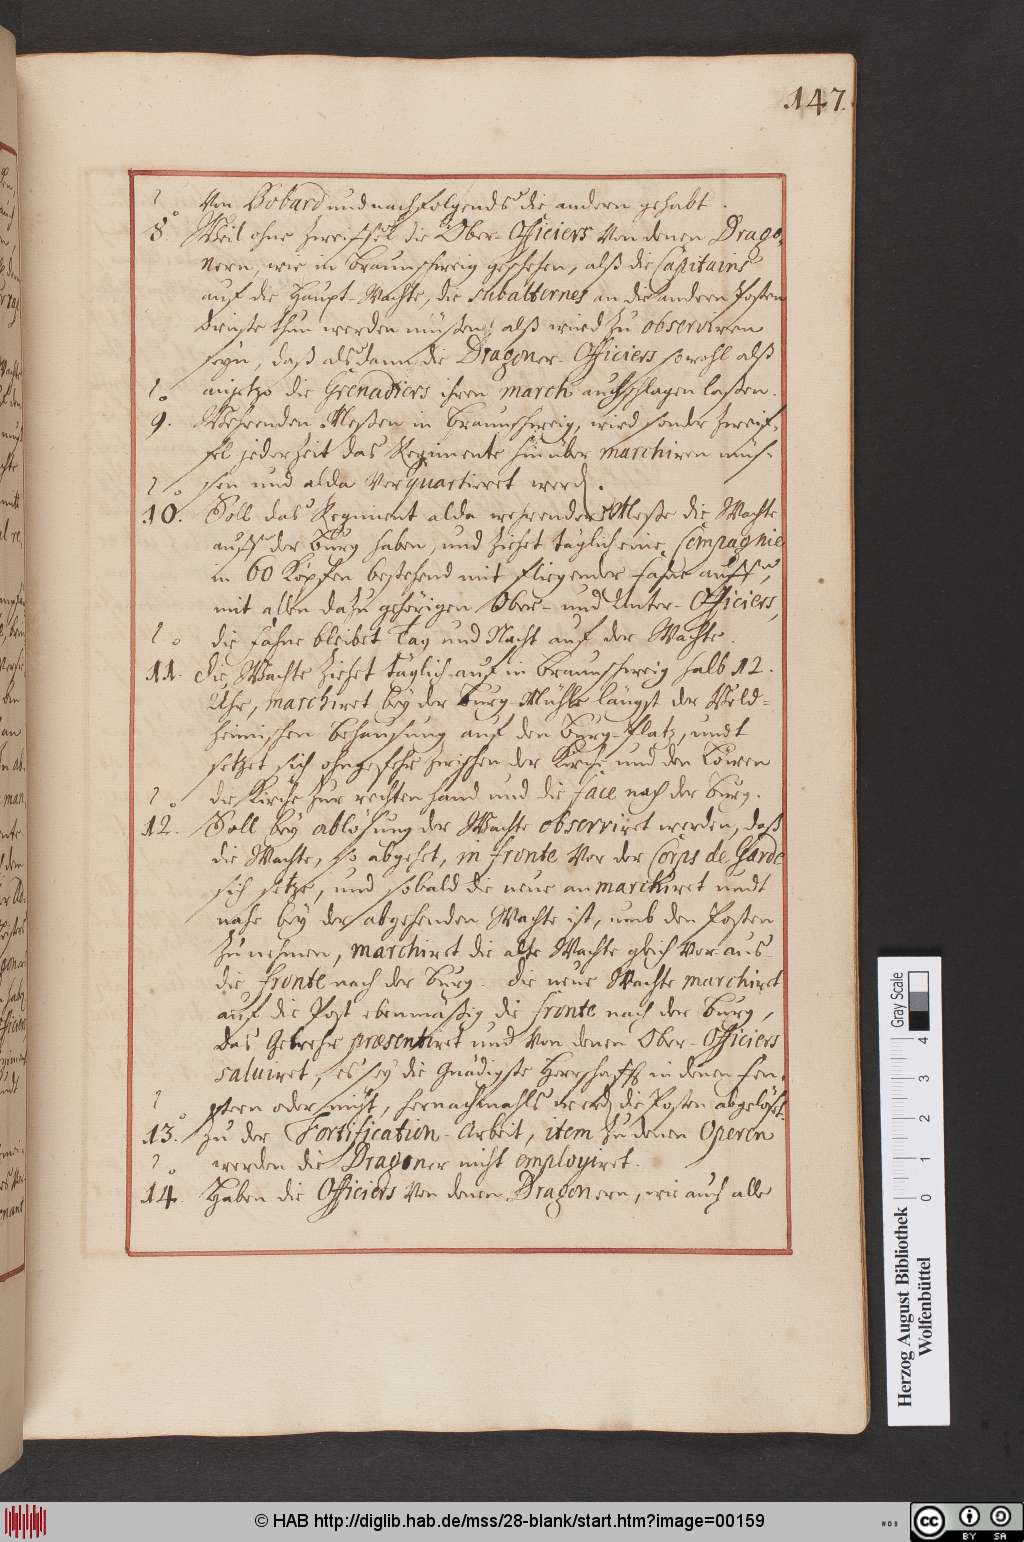 147.
von Bobard und nachfolgends die andern gehabt.
8. Weil ohne Zweiffel die Ober-Officiers von denen Drago-
nern, wie in Braunschweig geschehen, alß die Capitains
auf die Haupt-Wachte, die subalternes an die andern Posten
dienste thun werden müßen; alß wird zu observiren
seyn, daß alsdann die Dragoner-Officiers sowohl alß
anjetzo die Grenadiers ihren march auchschlagen laßen.
9. Wehrenden Meßen in Braunschweig, wird sonder Zweif-
fel jederzeit das Regimente hinüber marchiren müs-
sen und alda verquartieret werd.
10. Soll das Regiment alda wehrender Meße die Wachte
auff der Burg haben, und ziehet täglich eine Compagnie
in 60 Köpfen bestehend mit fliegender fahne auff,
mit allen dazu gehörigen Ober- und Unter-Officiers,
die fahne bleibet Tag und Nacht auf der Wachte.
11. Die Wachte ziehet täglich auf in Braunschweig halb 12.
Uhr, marchiret bey der Burg Mühle längst der Veld-
heimischen Behausung auf den Burg-Platz, undt
setzet sich ohngefehr zwischen der Kirche und den Löwen
die Kirche zur rechten hand und die face nach der Burg.
12. Soll bey ablösung der Wachte observiret werden, daß
die Wachte, so abgehet, in fronte vor der Corps de Garde
sich setze, und sobald die neue anmarchiret undt
nahe bey der abgehenden Wachte ist, umb den Posten
zu nehmen, marchiret die alte Wachte gleich vor aus
die fronte nach der Burg. die neue Wachte marchiret
auf die Post ebenmäßig die fronte nach der Burg,
das Gewehr præsentiret und von denen Ober-Officiers
saluiret, es sey die Gnädigste Herrschafft in denen fen-
stern oder nicht, hernachmahls werd die Posten abgelöst.
13. Zu der Fortification-Arbeit, item zu denen Operen
werden die Dragoner nicht employiret.
14. Haben die Officiers von denen Dragonern, wie auch alle
Gray Scale
0 1 2 3 4
Herzog August Bibliothek
Wolfenbüttel
© HAB http://diglib.hab.de/mss/28-blank/start.htm?image=00159
WDB
cc BY SA